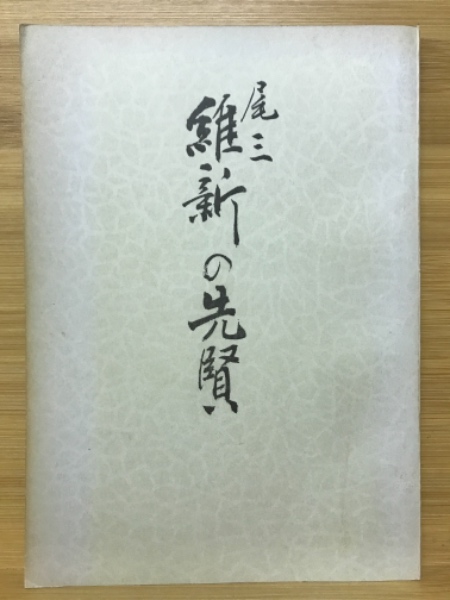 尾三
維新の先賢